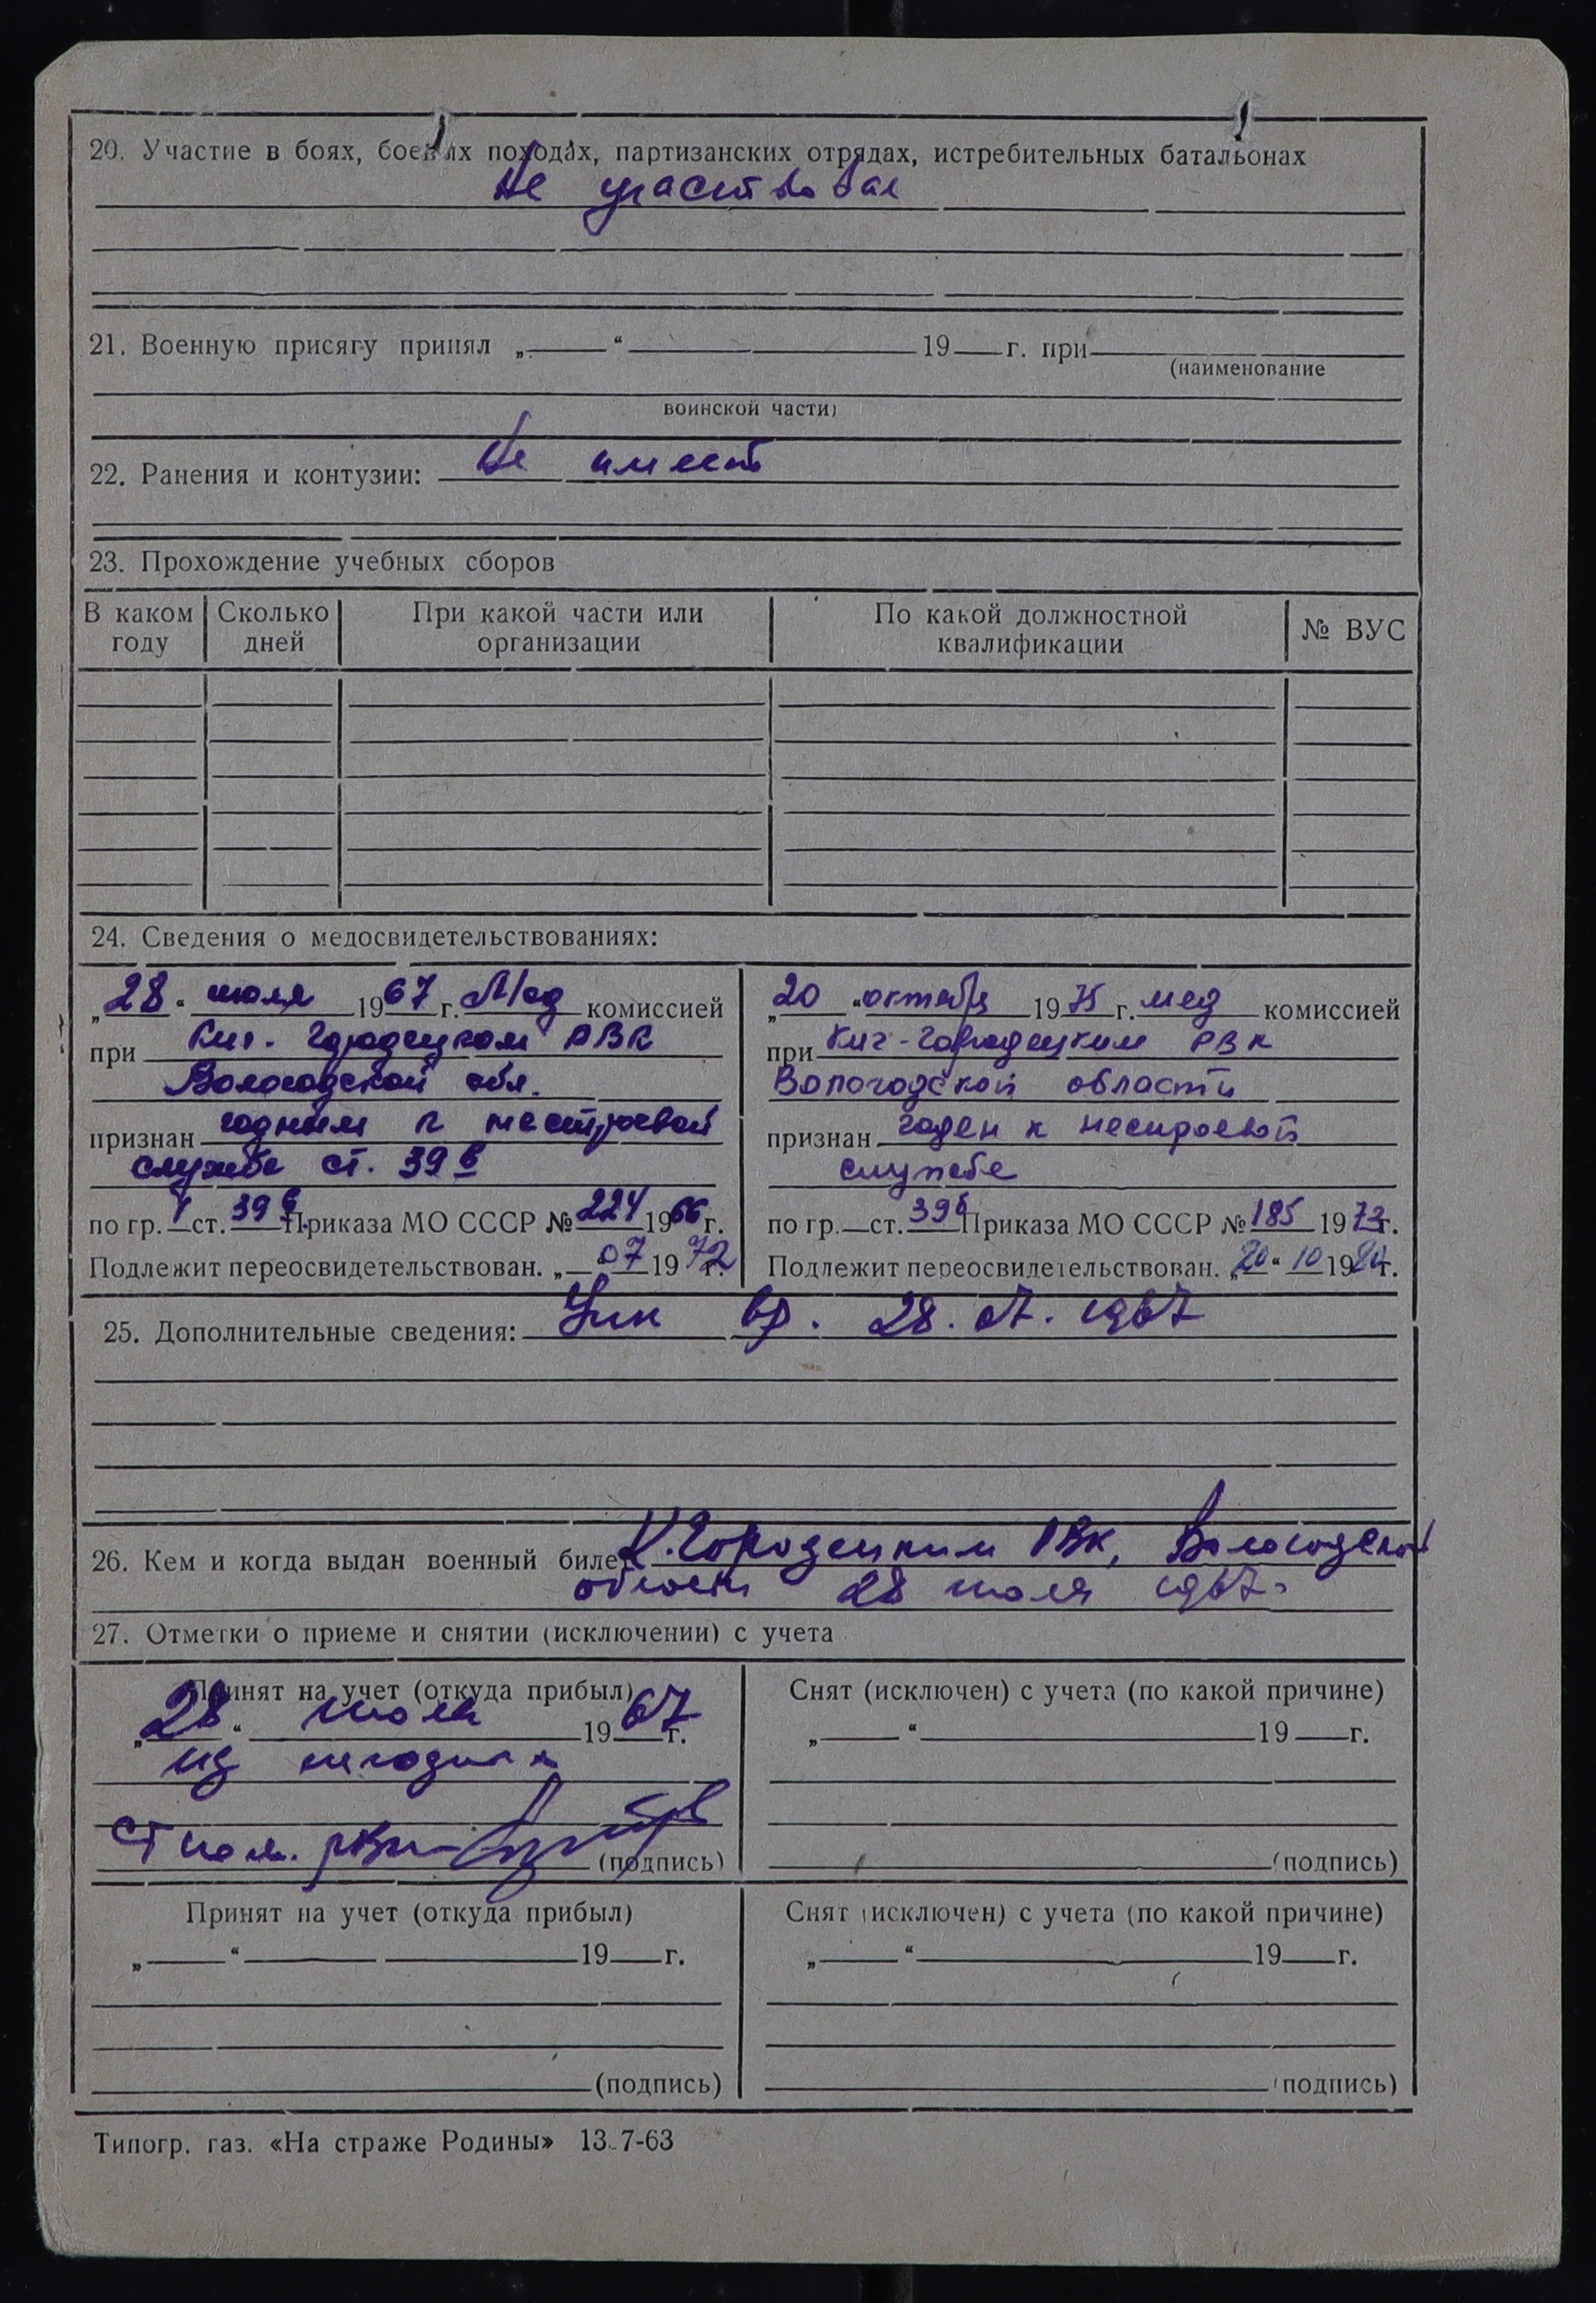 20. Участие в боях, боевых походах, партизанских отрядах, истребительных батальонах
Не участвовал
21. Военную присягу принял „ “ 19 г. при
(наименование
воинской части)
22. Ранения и контузии: Не имеет
23. Прохождение учебных сборов
В каком году Сколько дней При какой части или организации По какой должностной квалификации № ВУС
24. Сведения о медосвидетельствованиях:
„28“ июля 1967 г. комиссией
при Кич. Городецком РВК
Вологодской обл.
признан годным к нестроевой
службе ст. 39 в
по гр. ст. 39 в Приказа МО СССР № 224 1966 г.
Подлежит переосвидетельствован. „ 07 1972 г.
„20 “октября 1975 г. мед комиссией
при Кич-Городецким РВК
Вологодской области
признан годен к нестроевой
службе
по гр. ст. 39 Приказа МО СССР № 185 1973 г.
Подлежит переосвидетельствован. „20“ 10 1980 г.
25. Дополнительные сведения: 28. 07. 1967
26. Кем и когда выдан военный билет К.Городецким РВК, Вологодской
области 28 июля 1967г
27. Отметки о приеме и снятии (исключении) с учета
Принят на учет (откуда прибыл)
„28“ июля 1967 г.
из
Ст пом. РВК (подпись)
Снят (исключен) с учета (по какой причине)
„ “ 19 г.
(подпись)
Принят на учет (откуда прибыл)
„ “ 19 г.
(подпись)
Снят (исключен) с учета (по какой причине)
„ “ 19 г.
(подпись)
Типогр. газ. «На страже Родины» 13.7-63